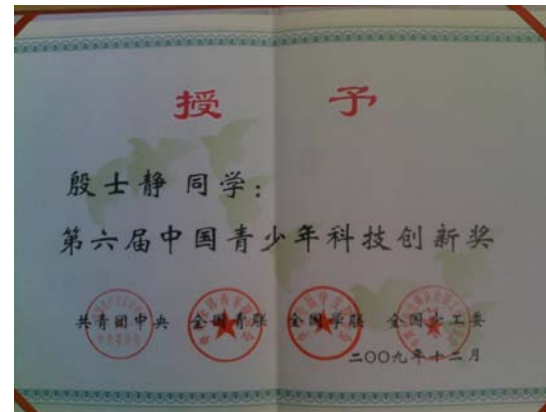 授 予
殷士静 同学:
第六届中国青少年科技创新奖
共青团中央 全国青联 全国学联 全国少工委
二〇〇九年十二月